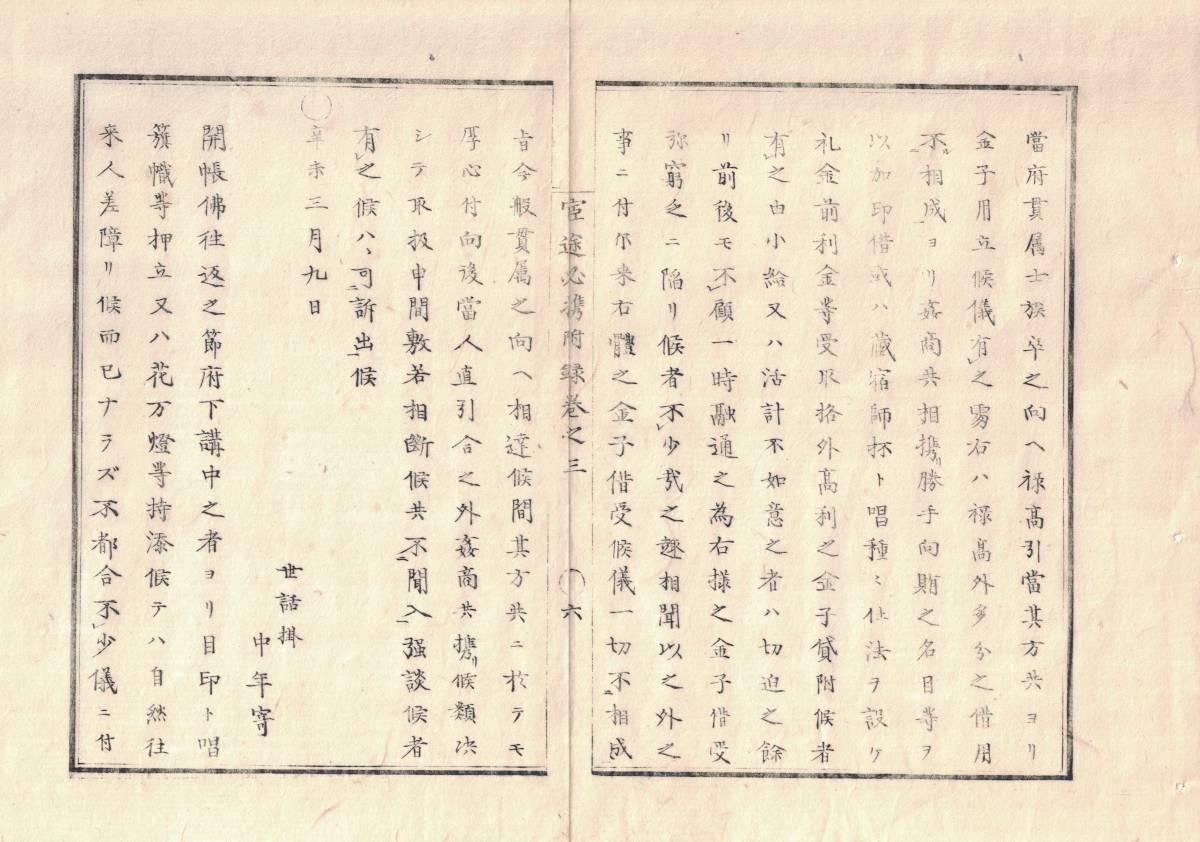 當府貫属士族卒之向ヘ禄高引當其方共ヨリ
金子用立候儀有之勇右ハ禄高外多分之借用
不相成ヨリ姦商共相携勝手向賄之名目等ヲ
以加印借或ハ藏宿師抔ト唱種〻仕法ヲ設ケ
礼金前利金等受取格外高利之金子貸附候者
有之由小給又ハ活計不如意之者ハ切迫之餘
リ前後モ不顧一時融通之為右様之金子借受
弥窮乏ニ陥リ候者不少哉之趣相聞以之外之
事ニ付尓来右體之金子借受候儀一切不相成
宦途必携附録巻之三 〇六
旨今般貫属之向ヘ相達候間其方共ニ於テモ
厚心付向後當人直引合之外姦商共携候類决
シテ取扱申間敷若相斷候共不聞入强談候者
有之候ハ、可訴出候
辛未三月九日
世話掛
中年寄
開帳佛往返之節府下講中之者ヨリ目印ト唱
籏幟等押立又ハ花万燈等持添候テハ自然往
来人差障リ候而已ナラズ不都合不少儀ニ付